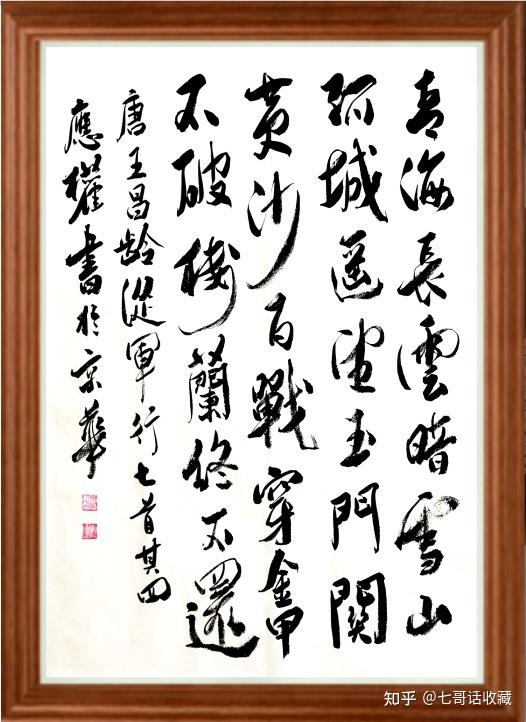 青海長雲暗雪山
孤城遥望玉門關
黄沙百戰穿金甲
不破樓蘭終不還
唐王昌齡從軍行七首其四
應書於京華
知乎 @七哥话收藏